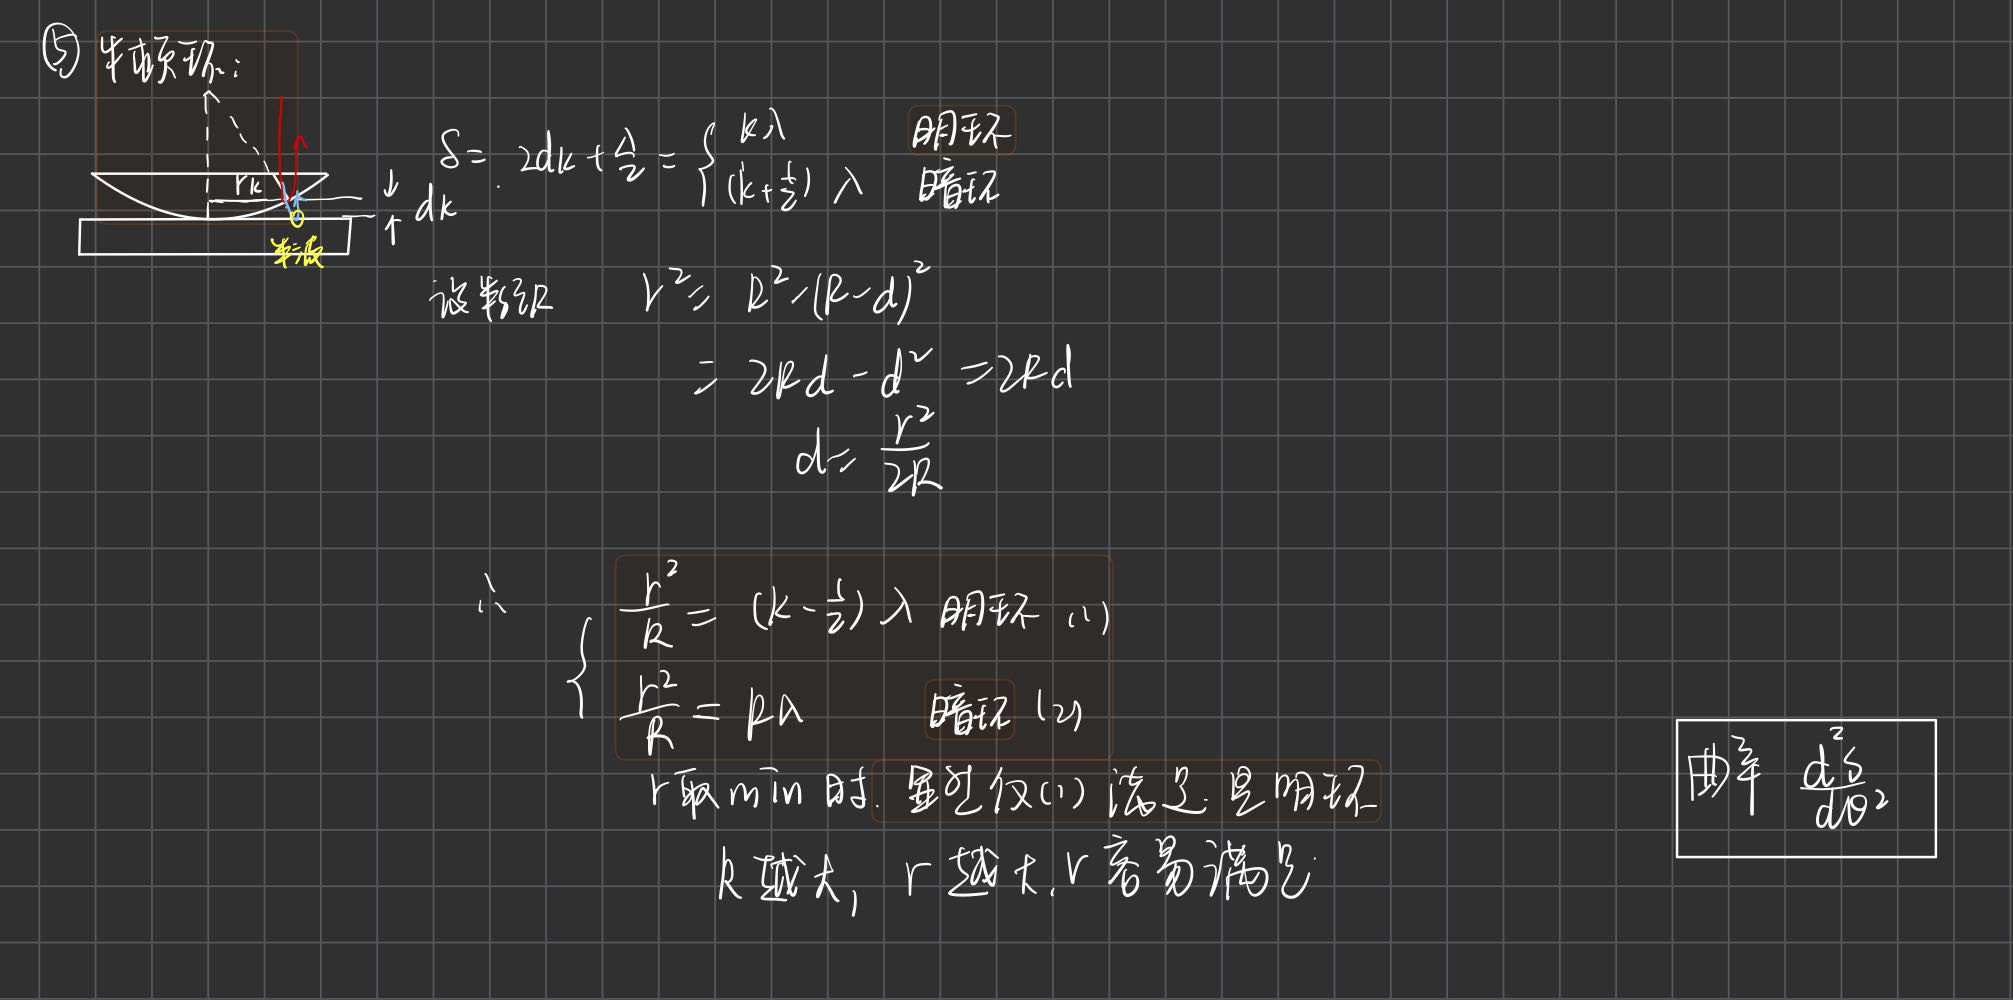 ⑤ 牛顿环:
rk
dk
半波
δ = 2dk + λ/2 = { kλ 明环
(k+1/2) λ 暗环
设 r² = R² - (R-d)²
= 2Rd - d² = 2Rd
d = r²/2R
∴ { r²/R = (k - 1/2) λ 明环 (1)
r²/R = Rλ 暗环 (2)
r取min时. 仅(1)满足. 是明环
R越大, r越大, r容易满足.
曲率 d²s/dθ²